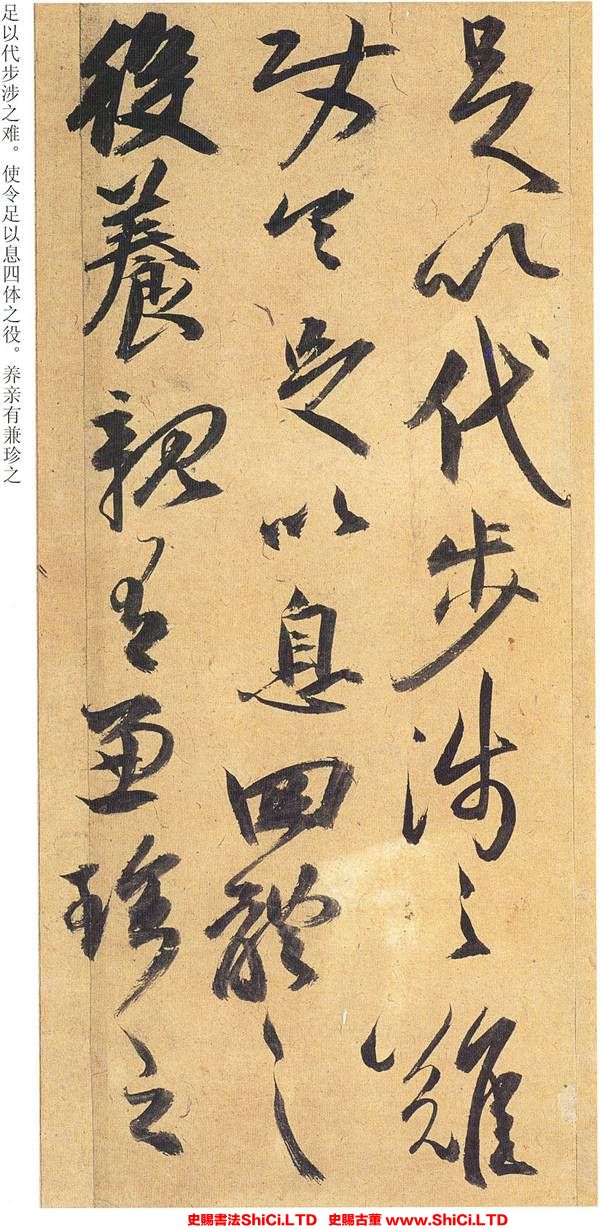 足以代步涉之難
使令足以息四體之
役養親有兼珍之
足以代步涉之难。使令足以息四体之役。养亲有兼珍之
史賜書法ShiCi.LTD 史賜古董 www.ShiCi.LTD